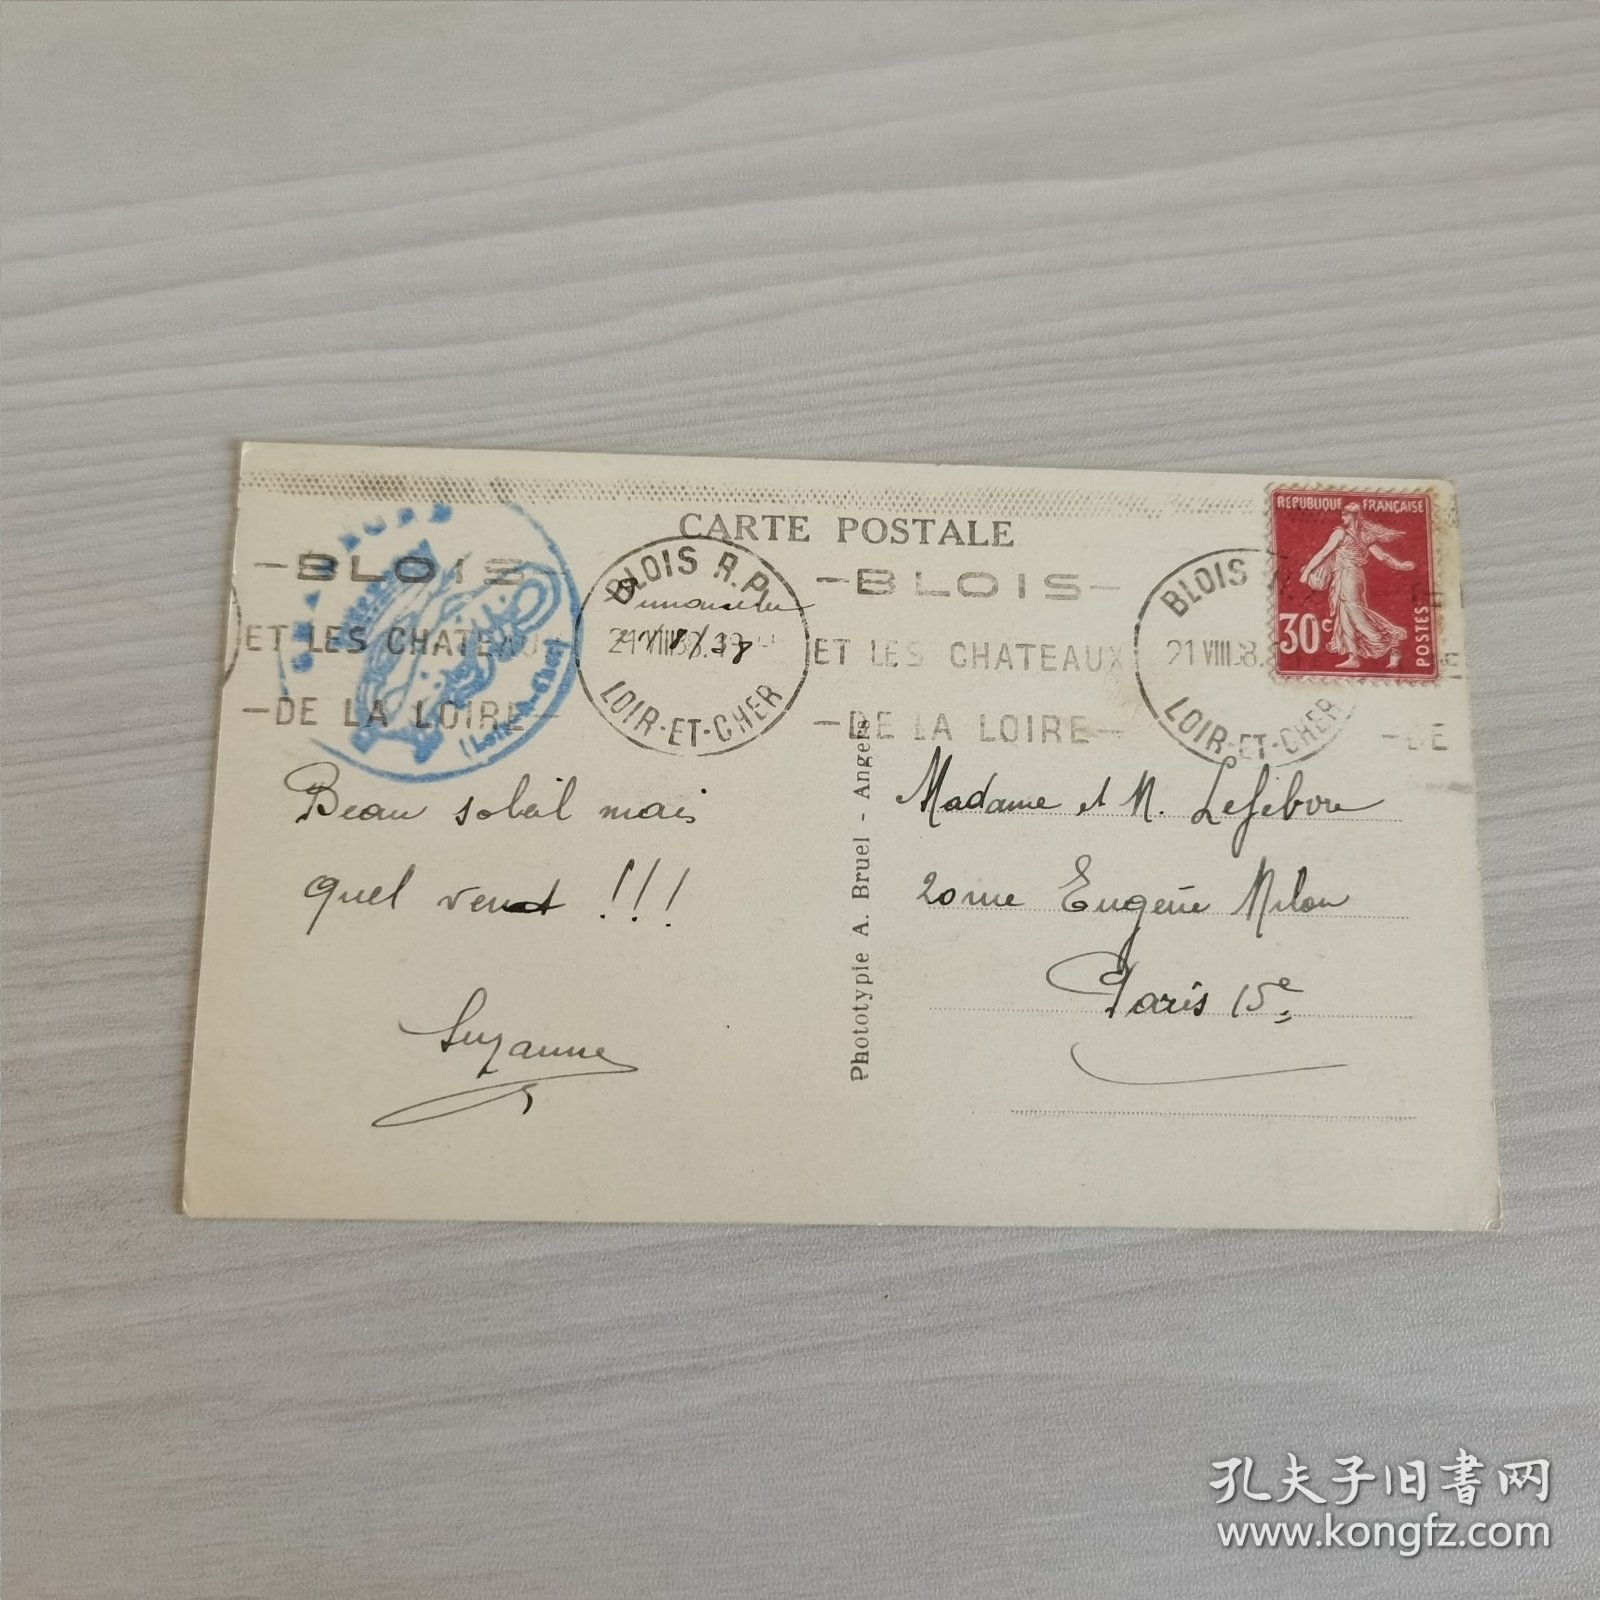 CARTE POSTALE
BLOIS
ET LES CHATEAUX
DE LA LOIRE
BLOIS R.P.
21 VIII 38
LOIR-ET-CHER
BLOIS
ET LES CHATEAUX
DE LA LOIRE
BLOIS
21 VIII 38
LOIR-ET-CHER
DE
REPUBLIQUE FRANÇAISE
30c
POSTES
(Loir-&-Cher)
Beau soleil mais
quel vent !!!
Suzanne
Phototypie A. Bruel - Angers
Madame et M. Lefebvre
20 rue Eugène Milon
Paris 15e
孔夫子旧书网
www.kongfz.com